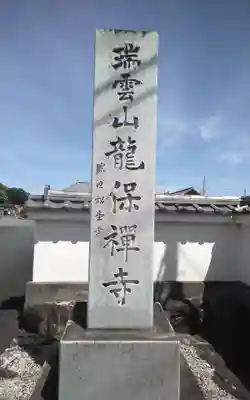 瑞雲山龍保禪寺